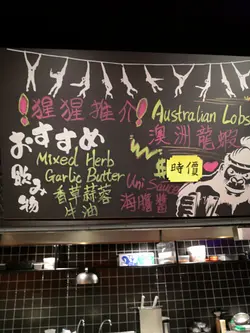 !猩猩推介!
おすすめ
飲み物
Mixed Herb
Garlic Butter
香草蒜蓉
牛油
Australian Lobs
澳洲龍蝦
$
時價
Uni Sauce
海膽醬